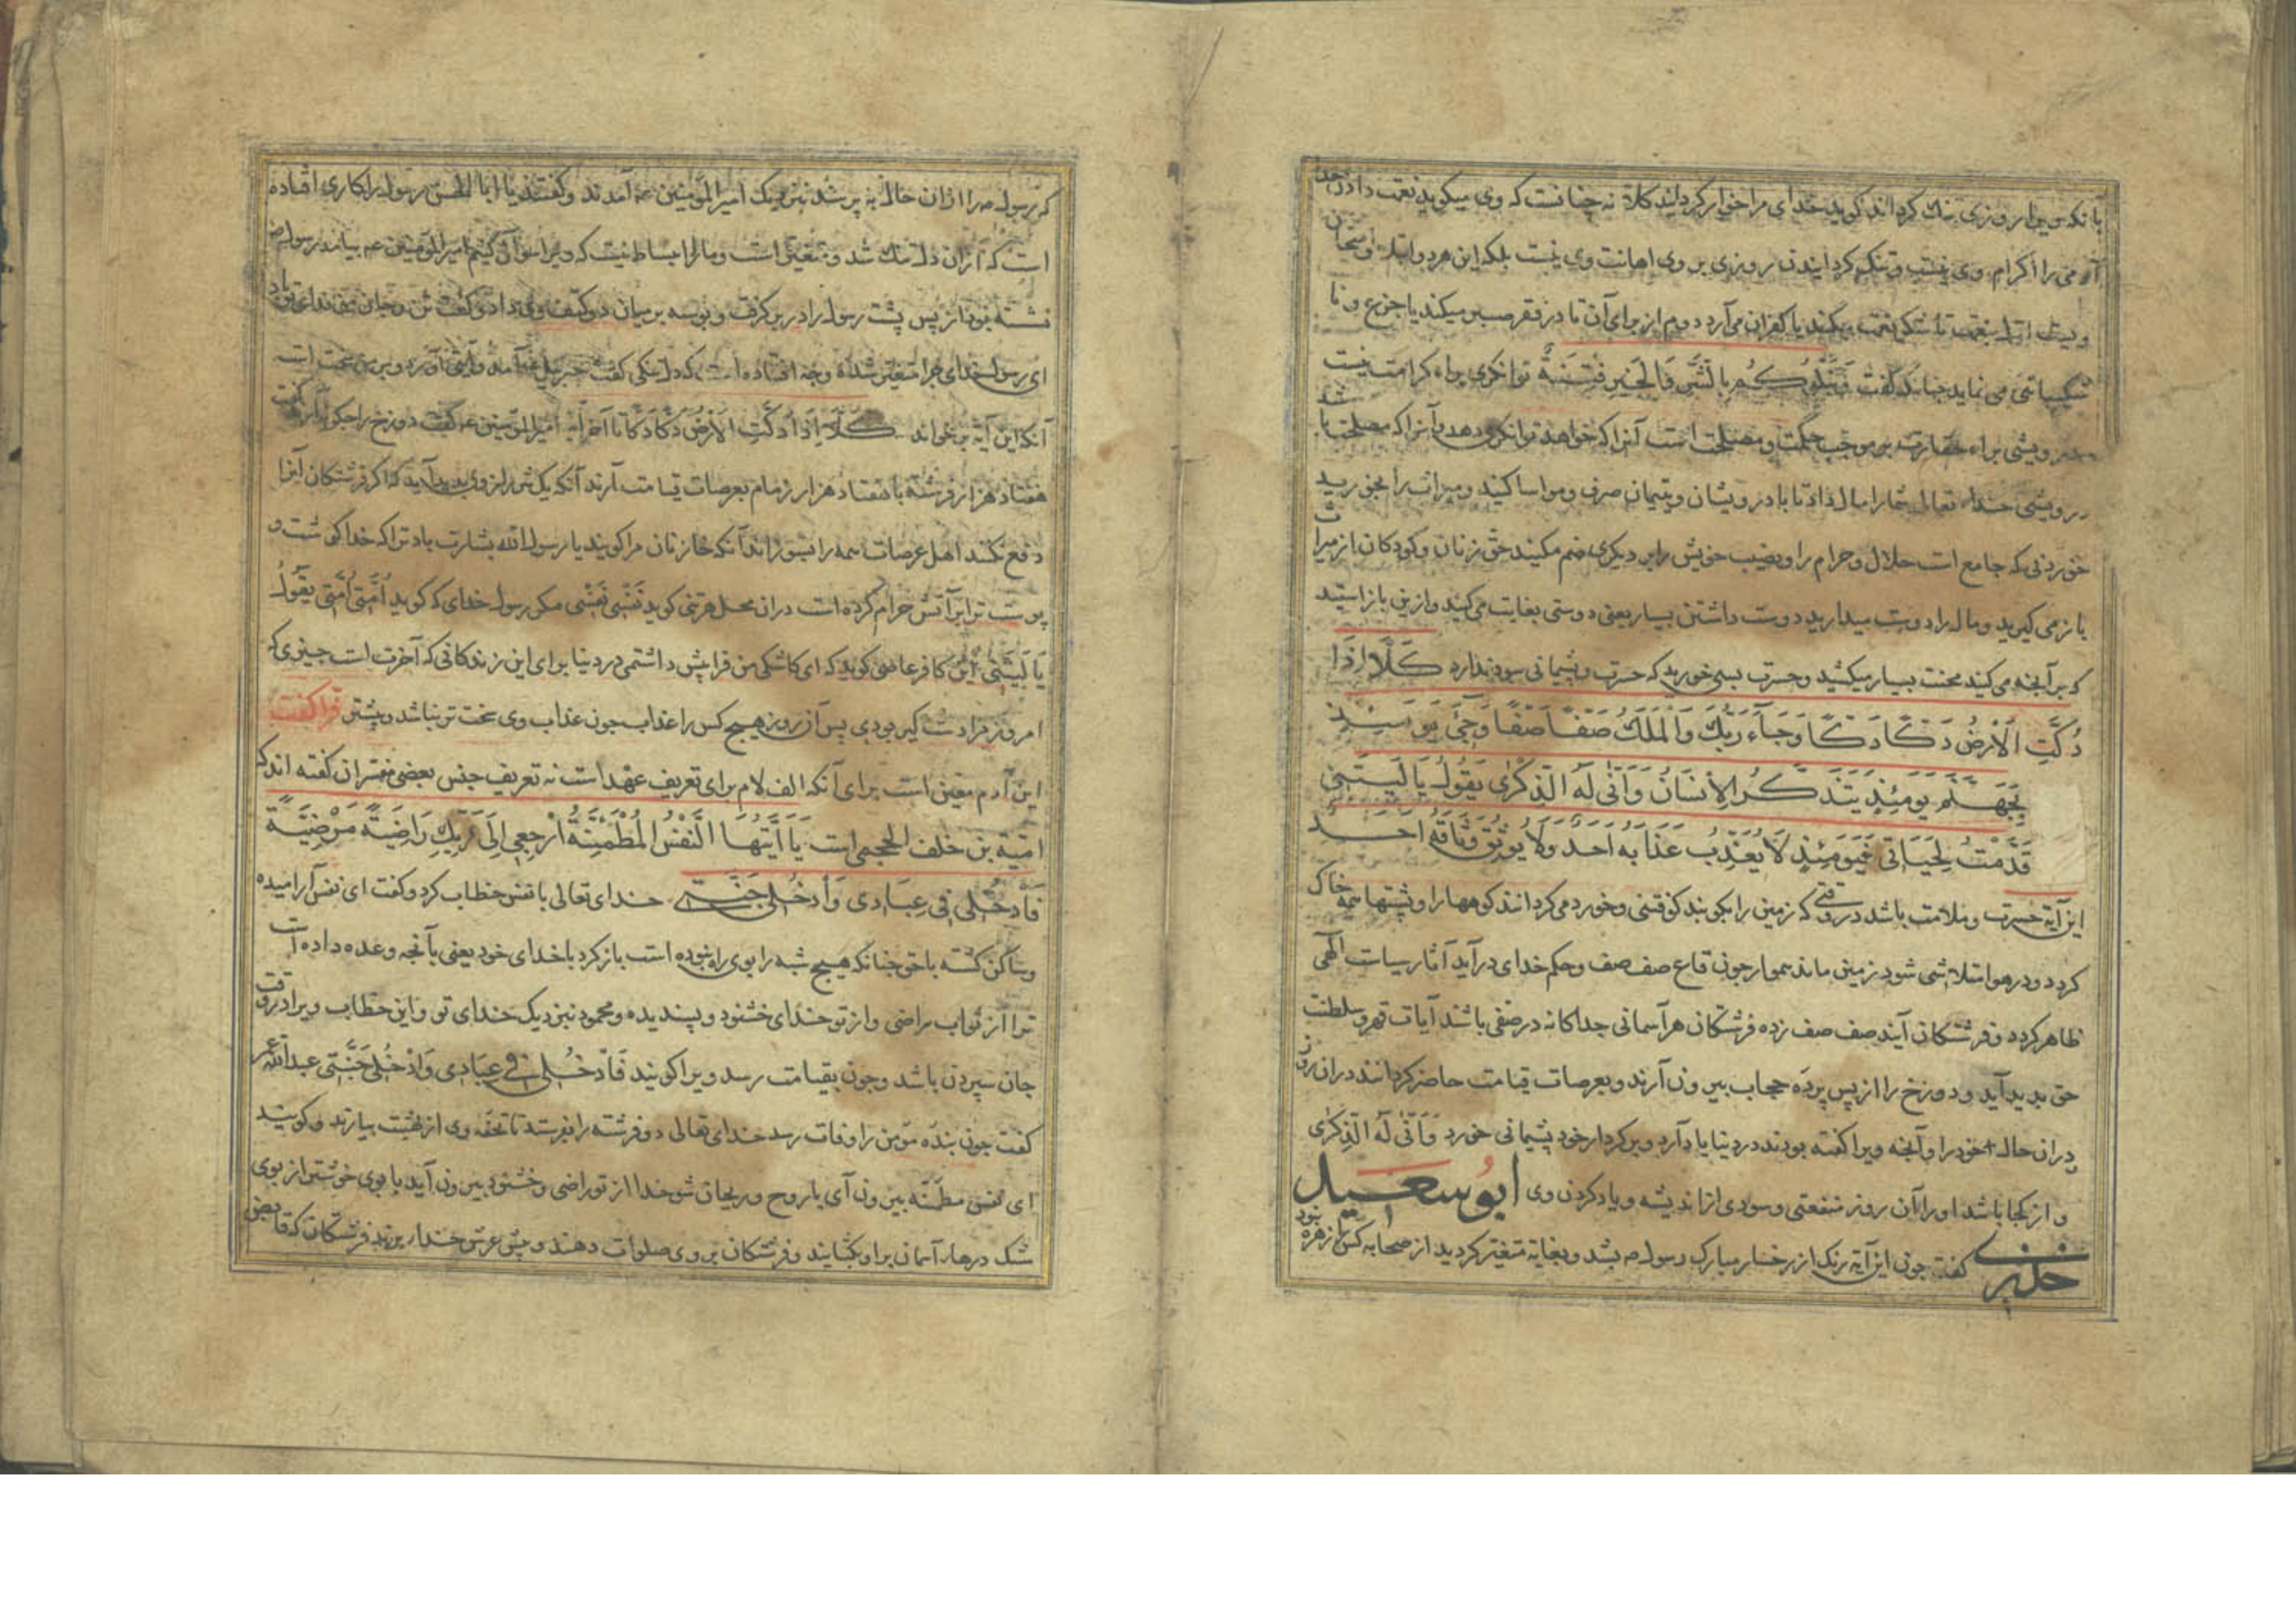 بانکه ویرا روزی تنك کرداند کوید خدای مرا خوار کردانید کلا نه چنانست که وی میکوید نعمت دادن خدا
آدمی را اکرام وی نیست و تنك کردانیدن روزی بر وی اهانت وی نیست بلکه این هر دو ابتلا و امتحان
ویست ابتلا بنعمت تا شکر نعمت میکند یا کفران می آرد دوم از برای آن تا در فقر صبر میکند یا جزع و نا
شکیبائی می نماید چنانکه کفت وَنَبْلُوكُمْ بِالشَّرِّ وَالْخَيْرِ فِتْنَةً توانکری براء کرامت نیست
درویشی براء حقارت بر موجب حکمت و مصلحت است آنرا که خواهد توانکری دهد و آنرا که مصلحت باشد
درویشی خداء تعالی شما را مال داد تا با درویشان و یتیمان صرف و مواسا کنید و میراث را بحق رسید
خوردنی که جامع است حلال و حرام را و نصیب خویش را بر دیکری ضم مکنید حق زنان و کودکان از میراث
باز می کیرید و مال را دوست میدارید دوست داشتن بسیار یعنی دوستی بغایت می کنید و ازین باز استید
که بر آنچه می کنید محنت بسیار میکشید و حسرت بسی خورید که حسرت و پشیمانی سود ندارد كَلَّا إِذَا
دُكَّتِ الْأَرْضُ دَكًّا دَكًّا وَجَاءَ رَبُّكَ وَالْمَلَكُ صَفًّا صَفًّا وَجِيءَ يَوْمَئِذٍ
بِجَهَنَّمَ يَوْمَئِذٍ يَتَذَكَّرُ الْإِنْسَانُ وَأَنَّى لَهُ الذِّكْرَى يَقُولُ يَا لَيْتَنِي
قَدَّمْتُ لِحَيَاتِي فَيَوْمَئِذٍ لَا يُعَذِّبُ عَذَابَهُ أَحَدٌ وَلَا يُوثِقُ وَثَاقَهُ أَحَدٌ
این آیة حسرت و ملامت باشد در وقتی که زمین را بکوبند کوفتنی و خورد می کردانند کوهها را و پشتها همه خاك
کردد و در هوا متلاشی شود زمین ماند هموار چون قاع صف صف و حکم خدای در آید آثار سیاست الهی
ظاهر کردد و فرشتکان آیند صف صف زده فرشتکان هر آسمانی جداکانه در صفی باشند آیات قهر و سلطنت
حق پدید آید و دوزخ را از پس پرده حجاب بیرون آرند و بعرصات قیامت حاضر کردانند در آن روز
در آن حالت خود را و آنچه ویرا کفته بودند در دنیا یاد آرد و بر کردار خود پشیمانی خورد وَأَنَّى لَهُ الذِّكْرَى
و از کجا باشد او را آن روز منفعتی و سودی از اندیشه و یاد کردن وی ابو سعید
خدری کفت چون این آیة رنك از رخسار مبارك رسول ص بشد و بغایة متغیر کردید از صحابه کس را زهره نبود
که رسول ص را از آن حالت به پرسند نزدیك امیر المؤمنین ع آمدند و کفتند یا ابا الحسن رسول را کاری افتاده
است که از آن دلتنك شد و متغیر است و ما را انبساط نیست که ویرا سوال کنیم امیر المؤمنین عم بیامد رسول ص
نشسته بود از پس پشت رسول را در بر کرفت و بوسه بر میان دو کتف وی داد و کفت تن و جان من فدای تو باد
ای رسول خدای چرا متغیر شدۀ و چه افتاده است که دلتنکی کفت جبرئیل آمده و آیتی آورده و بر من سخت است
آنکه این آیة بر خواند كَلَّا إِذَا دُكَّتِ الْأَرْضُ دَكًّا دَكًّا تا آخر آیه امیر المؤمنین ع کفت دوزخ را چکونه آرند کفت
هفتاد هزار فرشته با هفتاد هزار زمام بعرصات قیامت آرند آنکه یك شرر از وی پدید آید که اکر فرشتکان آنرا
دفع نکنند اهل عرصات همه را بسوزاند آنکه خازنان مرا کویند یا رسول الله بشارت باد ترا که خدا کوشت و
پوست تو بر آتش حرام کرده است در آن محل هر تنی کوید نَفْسِی نَفْسِی مکر رسول خدای که کوید أُمَّتِی أُمَّتِی يَقُولُ
يَا لَيْتَنِي این کافر عاصی کوید که ای کاشکی من فرا پیش داشتمی در دنیا برای این زندکانی که آخرت است چیزی که
امروز مرا دست کیر بودی پس آن روز هیچ کس را عذاب چون عذاب وی سخت تر نباشد و بیشتر فرا کفت
این آدم معین است برای آنکه الف لام برای تعریف عهد است نه تعریف جنس بعضی مفسران کفته اند که
امیة بن خلف الجحمی است يَا أَيَّتُهَا النَّفْسُ الْمُطْمَئِنَّةُ ارْجِعِي إِلَى رَبِّكِ رَاضِيَةً مَرْضِيَّةً
فَادْخُلِي فِي عِبَادِي وَادْخُلِي جَنَّتِي خدای تعالی با نفس خطاب کرد و کفت ای نفس آرامیده
و ساکن کشته با حق چنانکه هیچ شبه را بوی راه نبوده است باز کرد با خدای خود یعنی بآنچه وعده داده است
ترا از ثواب راضی و از تو خدای خشنود و پسندیده و محمود نزدیك خدای تو و این خطاب ویرا در وقت
جان سپردن باشد و چون بقیامت رسد ویرا کویند فَادْخُلِي فِي عِبَادِي وَادْخُلِي جَنَّتِي عبد الله عمر
کفت چون بندۀ مؤمن را وفات رسد خدای تعالی دو فرشته را بفرستد تا تحفۀ وی از بهشت بیارند و کویند
ای نفس مطمئنه بیرون آی با روح و ریحان شو خدا از تو راضی و خشنود بیرون آید با بوی خوشتر از بوی
مشك درهاء آسمان بر او بکشایند و فرشتکان بر وی صلوات دهند و پیش عرش خدا برند فرشتکان که قابض